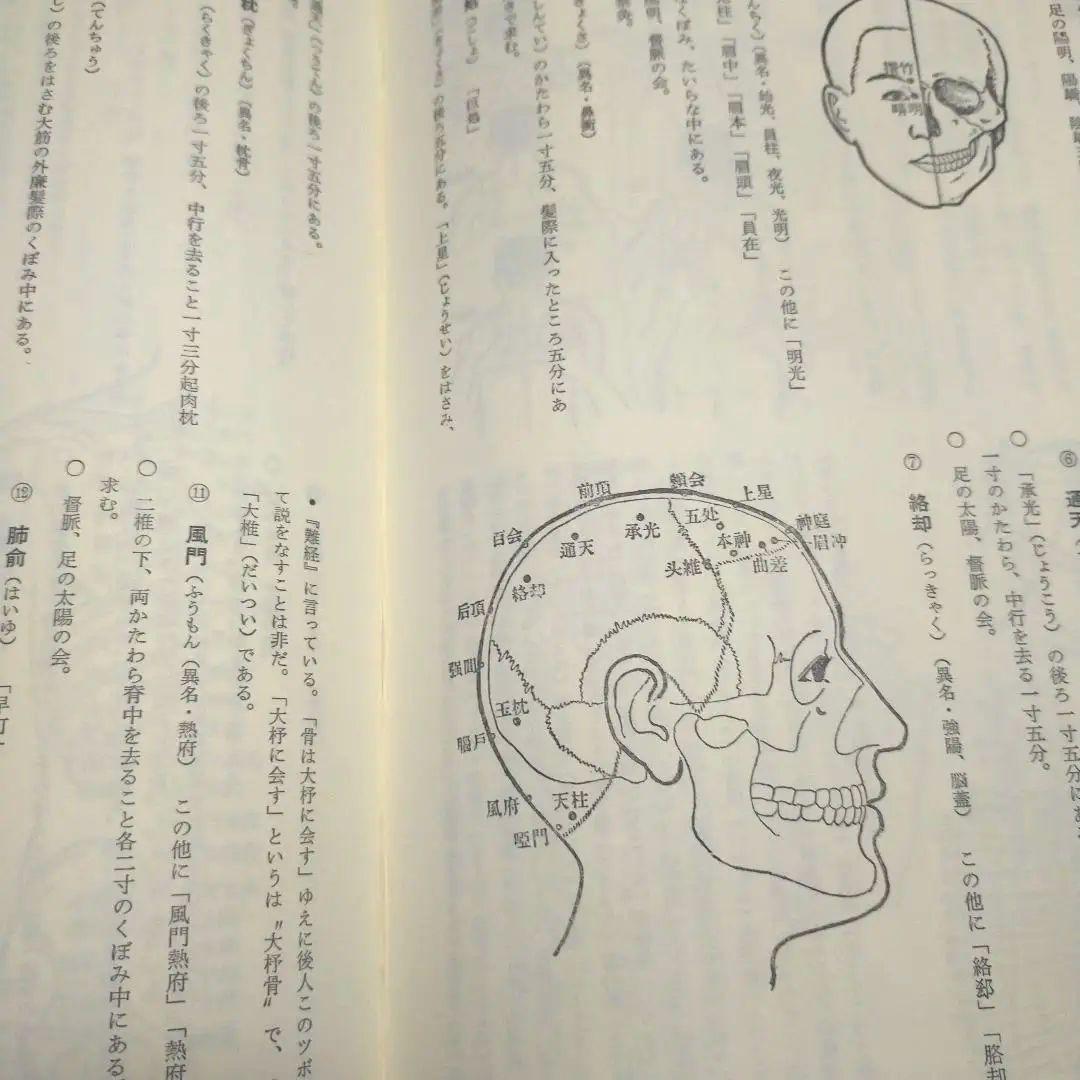 足の陽明、
攅竹
睛明
(異名・始光、員柱、夜光、光明) この他に「明光」
「眉中」「眉本」「眉頭」「員在」
くぼみ、たいらな中にある。
督脈の会。
のかたわら一寸五分、髪際に入ったところ五分にあ
で求む。
の後ろ五分にある。「上星」(じょうせい)をはさみ、
の後ろ一寸五分にある。
枕(ぎょくちん)(異名・枕骨)
(らっきゃく)の後ろ一寸五分、中行を去ること一寸三分起肉枕
(てんちゅう)
の後ろをはさむ大筋の外廉髪際のくぼみ中にある。
⑥ 通天
○ 「承光」(じょうこう)の後ろ一寸五分にあ
一寸のかたわら、中行を去る一寸五分。
○ 足の太陽、督脈の会。
⑦ 絡却(らっきゃく)(異名・強陽、脳蓋) この他に「絡郄」「胳却
前頂
顖会
上星
百会
通天
承光
五处
本神
神庭
眉冲
曲差
头維
絡却
后頂
强間
玉枕
腦戶
風府
天柱
啞門
• 『難経』に言っている。「骨は大杼に会す」ゆえに後人このツボ
て説をなすことは非だ。「大杼に会す」というは〝大杼骨〟で、
「大椎」(だいつい)である。
⑪ 風門(ふうもん)(異名・熱府) この他に「風門熱府」「熱府
○ 二椎の下、両かたわら脊中を去ること各二寸のくぼみ中にある
求む。
○ 督脈、足の太陽の会。
⑫ 肺俞(はいゆ)